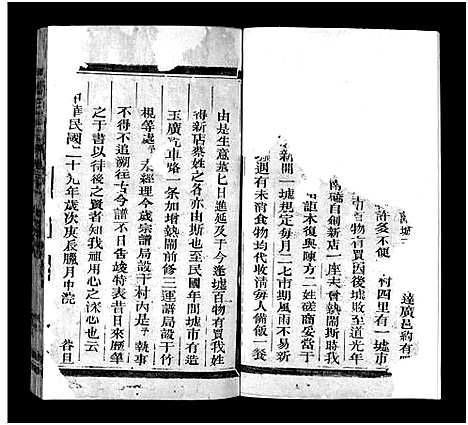 達廣邑約有
許多不便
村四里有一墟市
百物有買因後墟敗至道光年
自創新店一座未曾熱閙斯時我
距本復與陳方二姓磋商妥當于
新開一墟規定每月二七市期風雨不易新
週有未消食物均代收清每人俻飯一餐
由是生意蒸匕日進延及于今逢墟百物有買我姓
新店發姓之名亦由斯也至民國年間墟市有造
玉廣汽車路一条加增熱閙前修三運譜局設于竹
梘等處 永經理今歲宗譜局設于村内是 執事
不得不追溯往古今譜不日告竣特表昔日來歷筆
之于書以待後之賢者知我祖用心之深心也云
中華民國二十九年歲次庚辰臘月中浣 谷旦